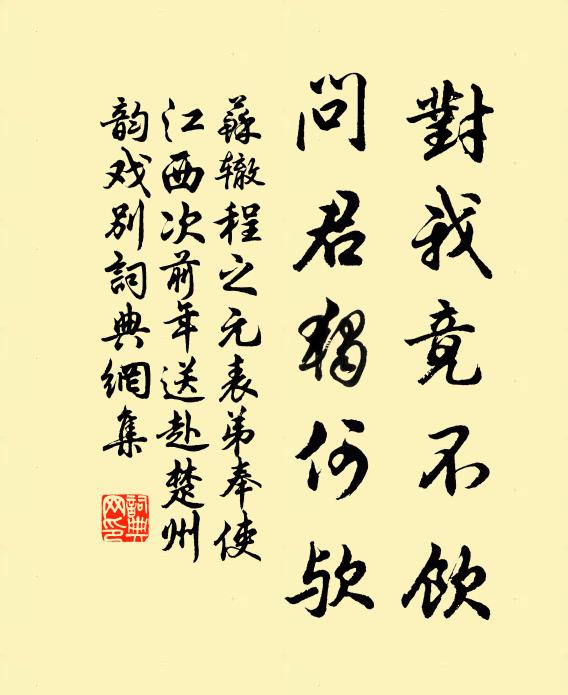 對我竟不飲
問君獨何欤
蘇辙程之元表弟奉使
江西次前年送赴楚州
韵戏别詞典網集
詞典
网印